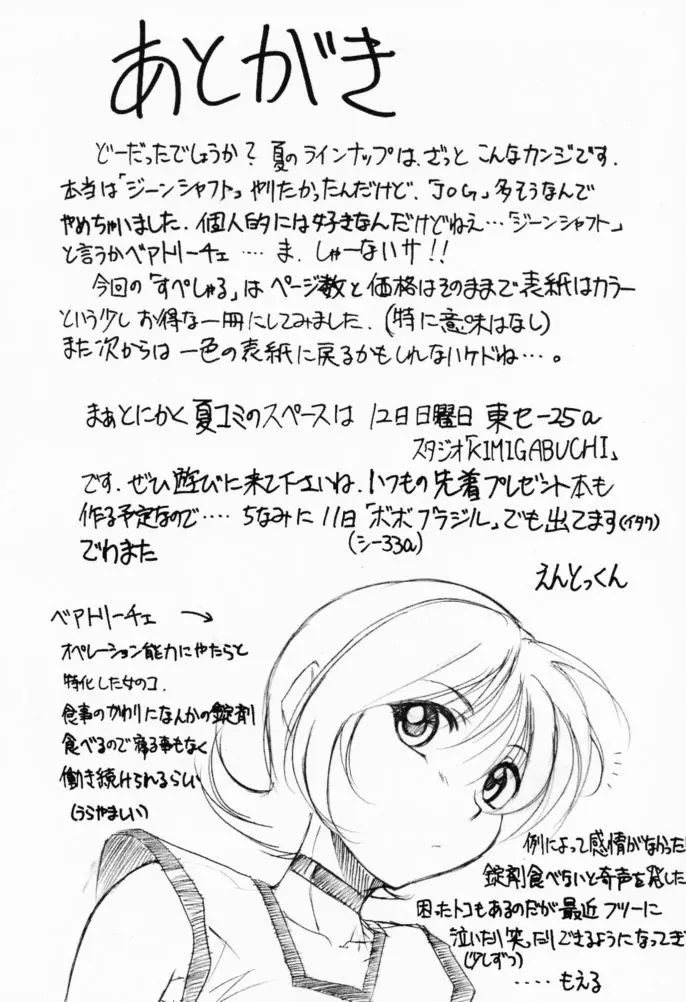 あとがき
どーだったでしょうか？夏のラインナップは、ざっと こんなカンジです.
本当は「ジーンシャフト」やりたかったんだけど、「JOG」多そうなんで
やめちゃいました. 個人的には好きなんだけどねえ…「ジーンシャフト」
と言うかベアトリーチェ …. ま、しゃーないサ!!
今回の「すぺしゃる」は ページ数と価格はそのままで表紙はカラー
という少しお得な一冊にしてみました. (特に意味はなし)
また次からは一色の表紙に戻るかもしれないケドね…。
まぁとにかく夏コミのスペースは 12日日曜日 東セ-25a
スタジオ「KIMIGABUCHI」
です. ぜひ遊びに来て下さいね. いつもの先着プレゼント本も
作る予定なので…. ちなみに 11日「ボボブラジル」でも出てます(イタク)
(シー33a)
でわまた
えんとっくん
ベアトリーチェ →
オペレーション能力にやたらと
特化した女のコ.
食事のかわりになんかの錠剤
食べるので寝る事もなく
働き続けられるらしい
(うらやましい)
例によって感情がなかった
錠剤食べないと奇声を発した
困ったトコもあるのだが最近フツーに
泣いたり笑ったりできるようになってき
(少しずつ)
….もえる